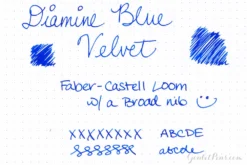 Diamine Blue
Velvet
Faber-Castell Loom
w/ a Broad nib
XXXXXXXX ABCDE
abcde
GouletPens.com